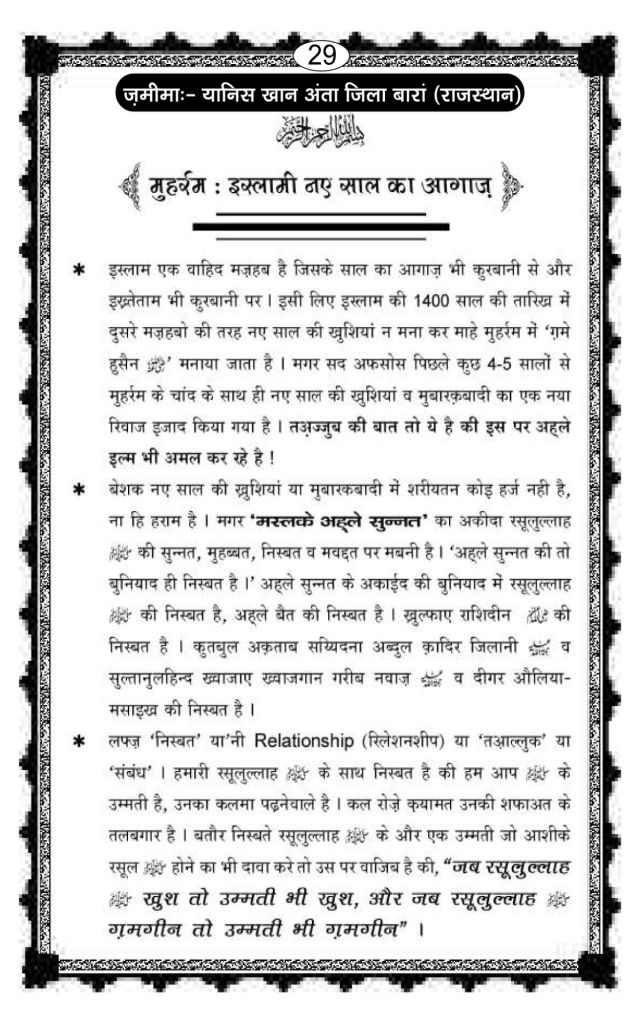 29
ज़मीमाः- यानिस खान अंता जिला बारां (राजस्थान)
بسم الله الرحمن الرحيم
मुहर्रम : इस्लामी नए साल का आगाज़
* इस्लाम एक वाहिद मज़हब है जिसके साल का आगाज़ भी कुरबानी से और
इख़्तेताम भी कुरबानी पर । इसी लिए इस्लाम की 1400 साल की तारिख में
दुसरे मज़हबो की तरह नए साल की खुशियां न मना कर माहे मुहर्रम में ‘ग़मे
हुसैन ’ मनाया जाता है । मगर सद अफसोस पिछले कुछ 4-5 सालों से
मुहर्रम के चांद के साथ ही नए साल की खुशियां व मुबारक़बादी का एक नया
रिवाज इजाद किया गया है । तअ़ज्जुब की बात तो ये है की इस पर अह्ले
इल्म भी अमल कर रहे है !
* बेशक नए साल की ख़ुशियां या मुबारकबादी में शरीयतन कोइ हर्ज नही है,
ना हि हराम है । मगर ‘मस्लके अह्ले सुन्नत’ का अकीदा रसूलुल्लाह
ﷺ की सुन्नत, मुहब्बत, निस्बत व मवद्दत पर मबनी है । ‘अह्ले सुन्नत की तो
बुनियाद ही निस्बत है ।’ अह्ले सुन्नत के अकाईद की बुनियाद में रसूलुल्लाह
ﷺ की निस्बत है, अह्ले बैत की निस्बत है । ख़ुल्फाए राशिदीन की
निस्बत है । कुतबुल अक़ताब सय्यिदना अब्दुल क़ादिर जिलानी व
सुल्तानुलहिन्द ख्वाजाए ख्वाजगान गरीब नवाज़ व दीगर औलिया-
मसाइख की निस्बत है ।
* लफ्ज़ ‘निस्बत’ या’नी Relationship (रिलेशनशीप) या ‘तआ़ल्लुक’ या
‘संबंध’ । हमारी रसूलुल्लाह ﷺ के साथ निस्बत है की हम आप ﷺ के
उम्मती है, उनका कलमा पढ़नेवाले है । कल रोज़े क़यामत उनकी शफाअत के
तलबगार है । बतौर निस्बते रसूलुल्लाह ﷺ के और एक उम्मती जो आशीके
रसूल ﷺ होने का भी दावा करे तो उस पर वाजिब है की, “जब रसूलुल्लाह
ﷺ खुश तो उम्मती भी खुश, और जब रसूलुल्लाह ﷺ
ग़मगीन तो उम्मती भी ग़मगीन” ।